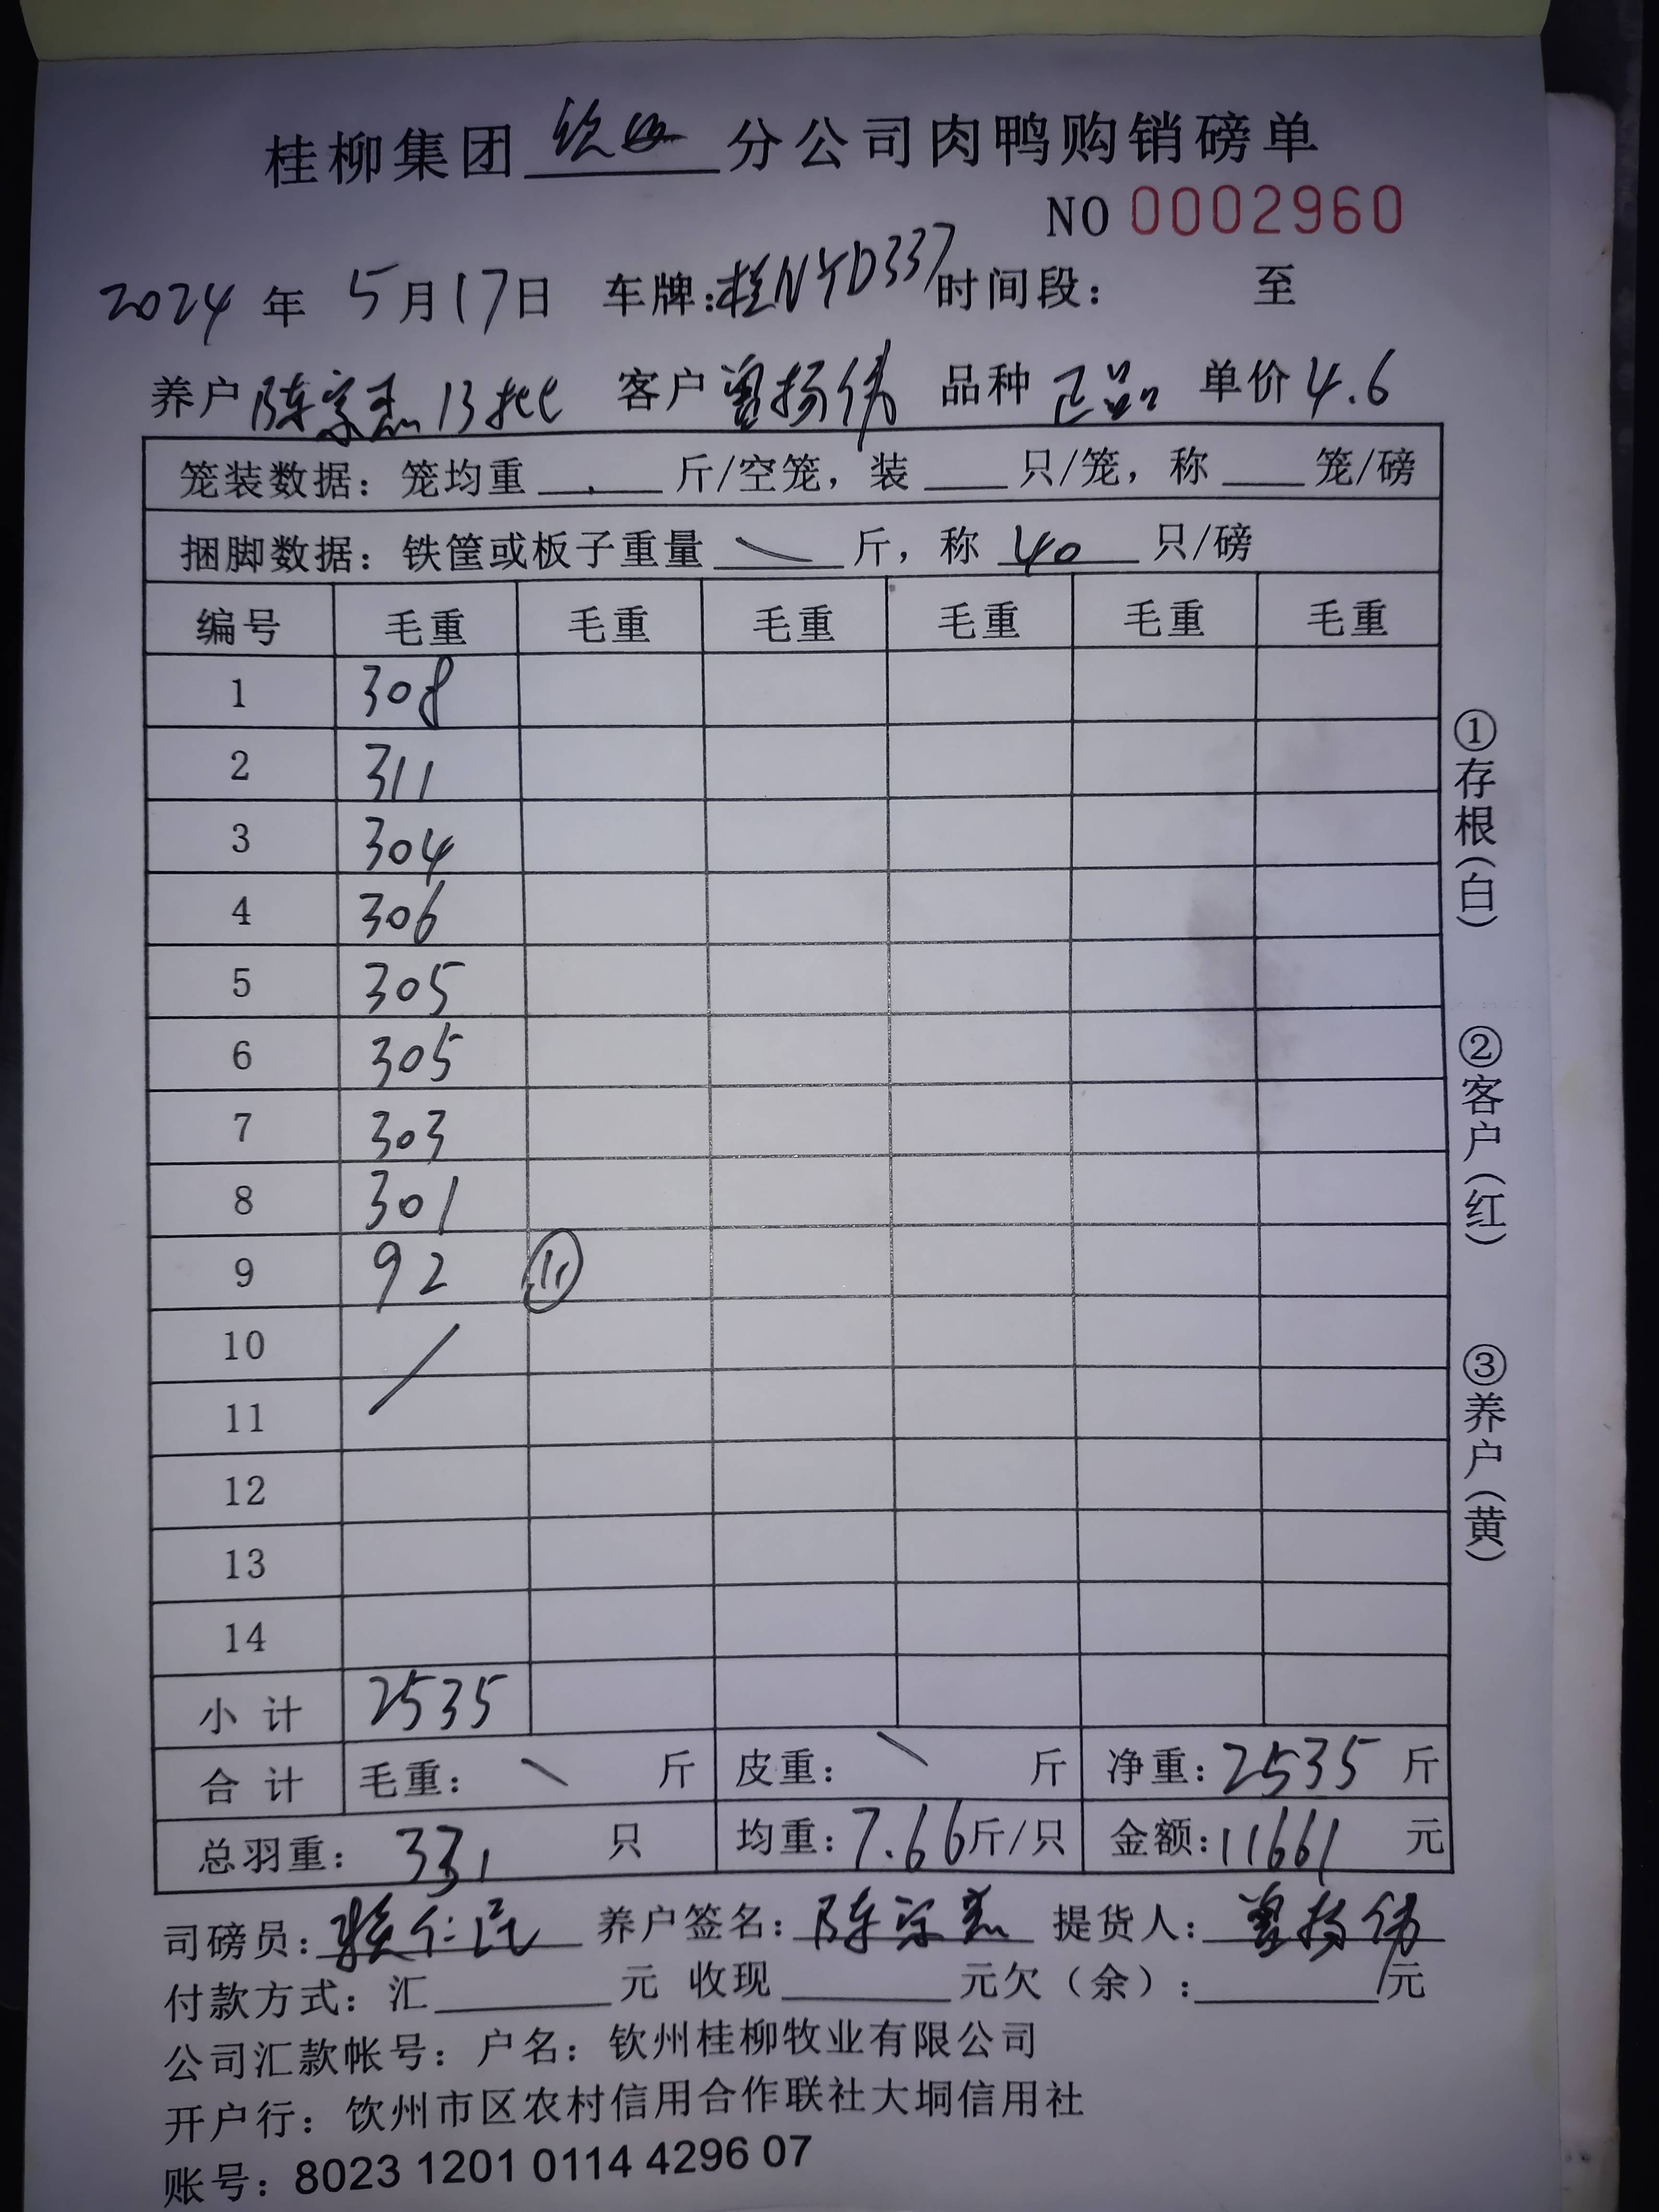 桂柳集团 钦州 分公司肉鸭购销磅单
NO 0002960
2024 年 5月17日 车牌:桂NYD337 时间段: 至
养户 陈宗杰 13批 客户 曾扬伟 品种 正品 单价 4.6
笼装数据: 笼均重 斤/空笼, 装 只/笼, 称 笼/磅
捆脚数据: 铁筐或板子重量 \ 斤, 称 40 只/磅
编号 毛重 毛重 毛重 毛重 毛重 毛重
1 308
2 311
3 304
4 306
5 305
6 305
7 303
8 301
9 92 ⑪
10 /
11
12
13
14
小计 2535
合计 毛重: \ 斤 皮重: \ 斤 净重: 2535 斤
总羽重: 331 只 均重: 7.66斤/只 金额: 11661 元
司磅员: 赖仁民 养户签名: 陈宗杰 提货人: 曾扬伟
付款方式: 汇 元 收现 元欠(余): 元
公司汇款帐号: 户名: 钦州桂柳牧业有限公司
开户行: 钦州市区农村信用合作联社大垌信用社
账号: 8023 1201 0114 4296 07
①存根(白)
②客户(红)
③养户(黄)